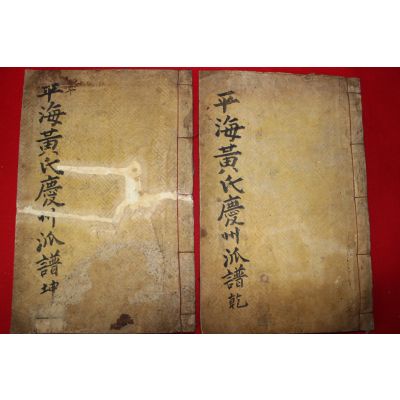 平海黃氏慶州派譜 乾
平海黃氏慶州派譜 坤